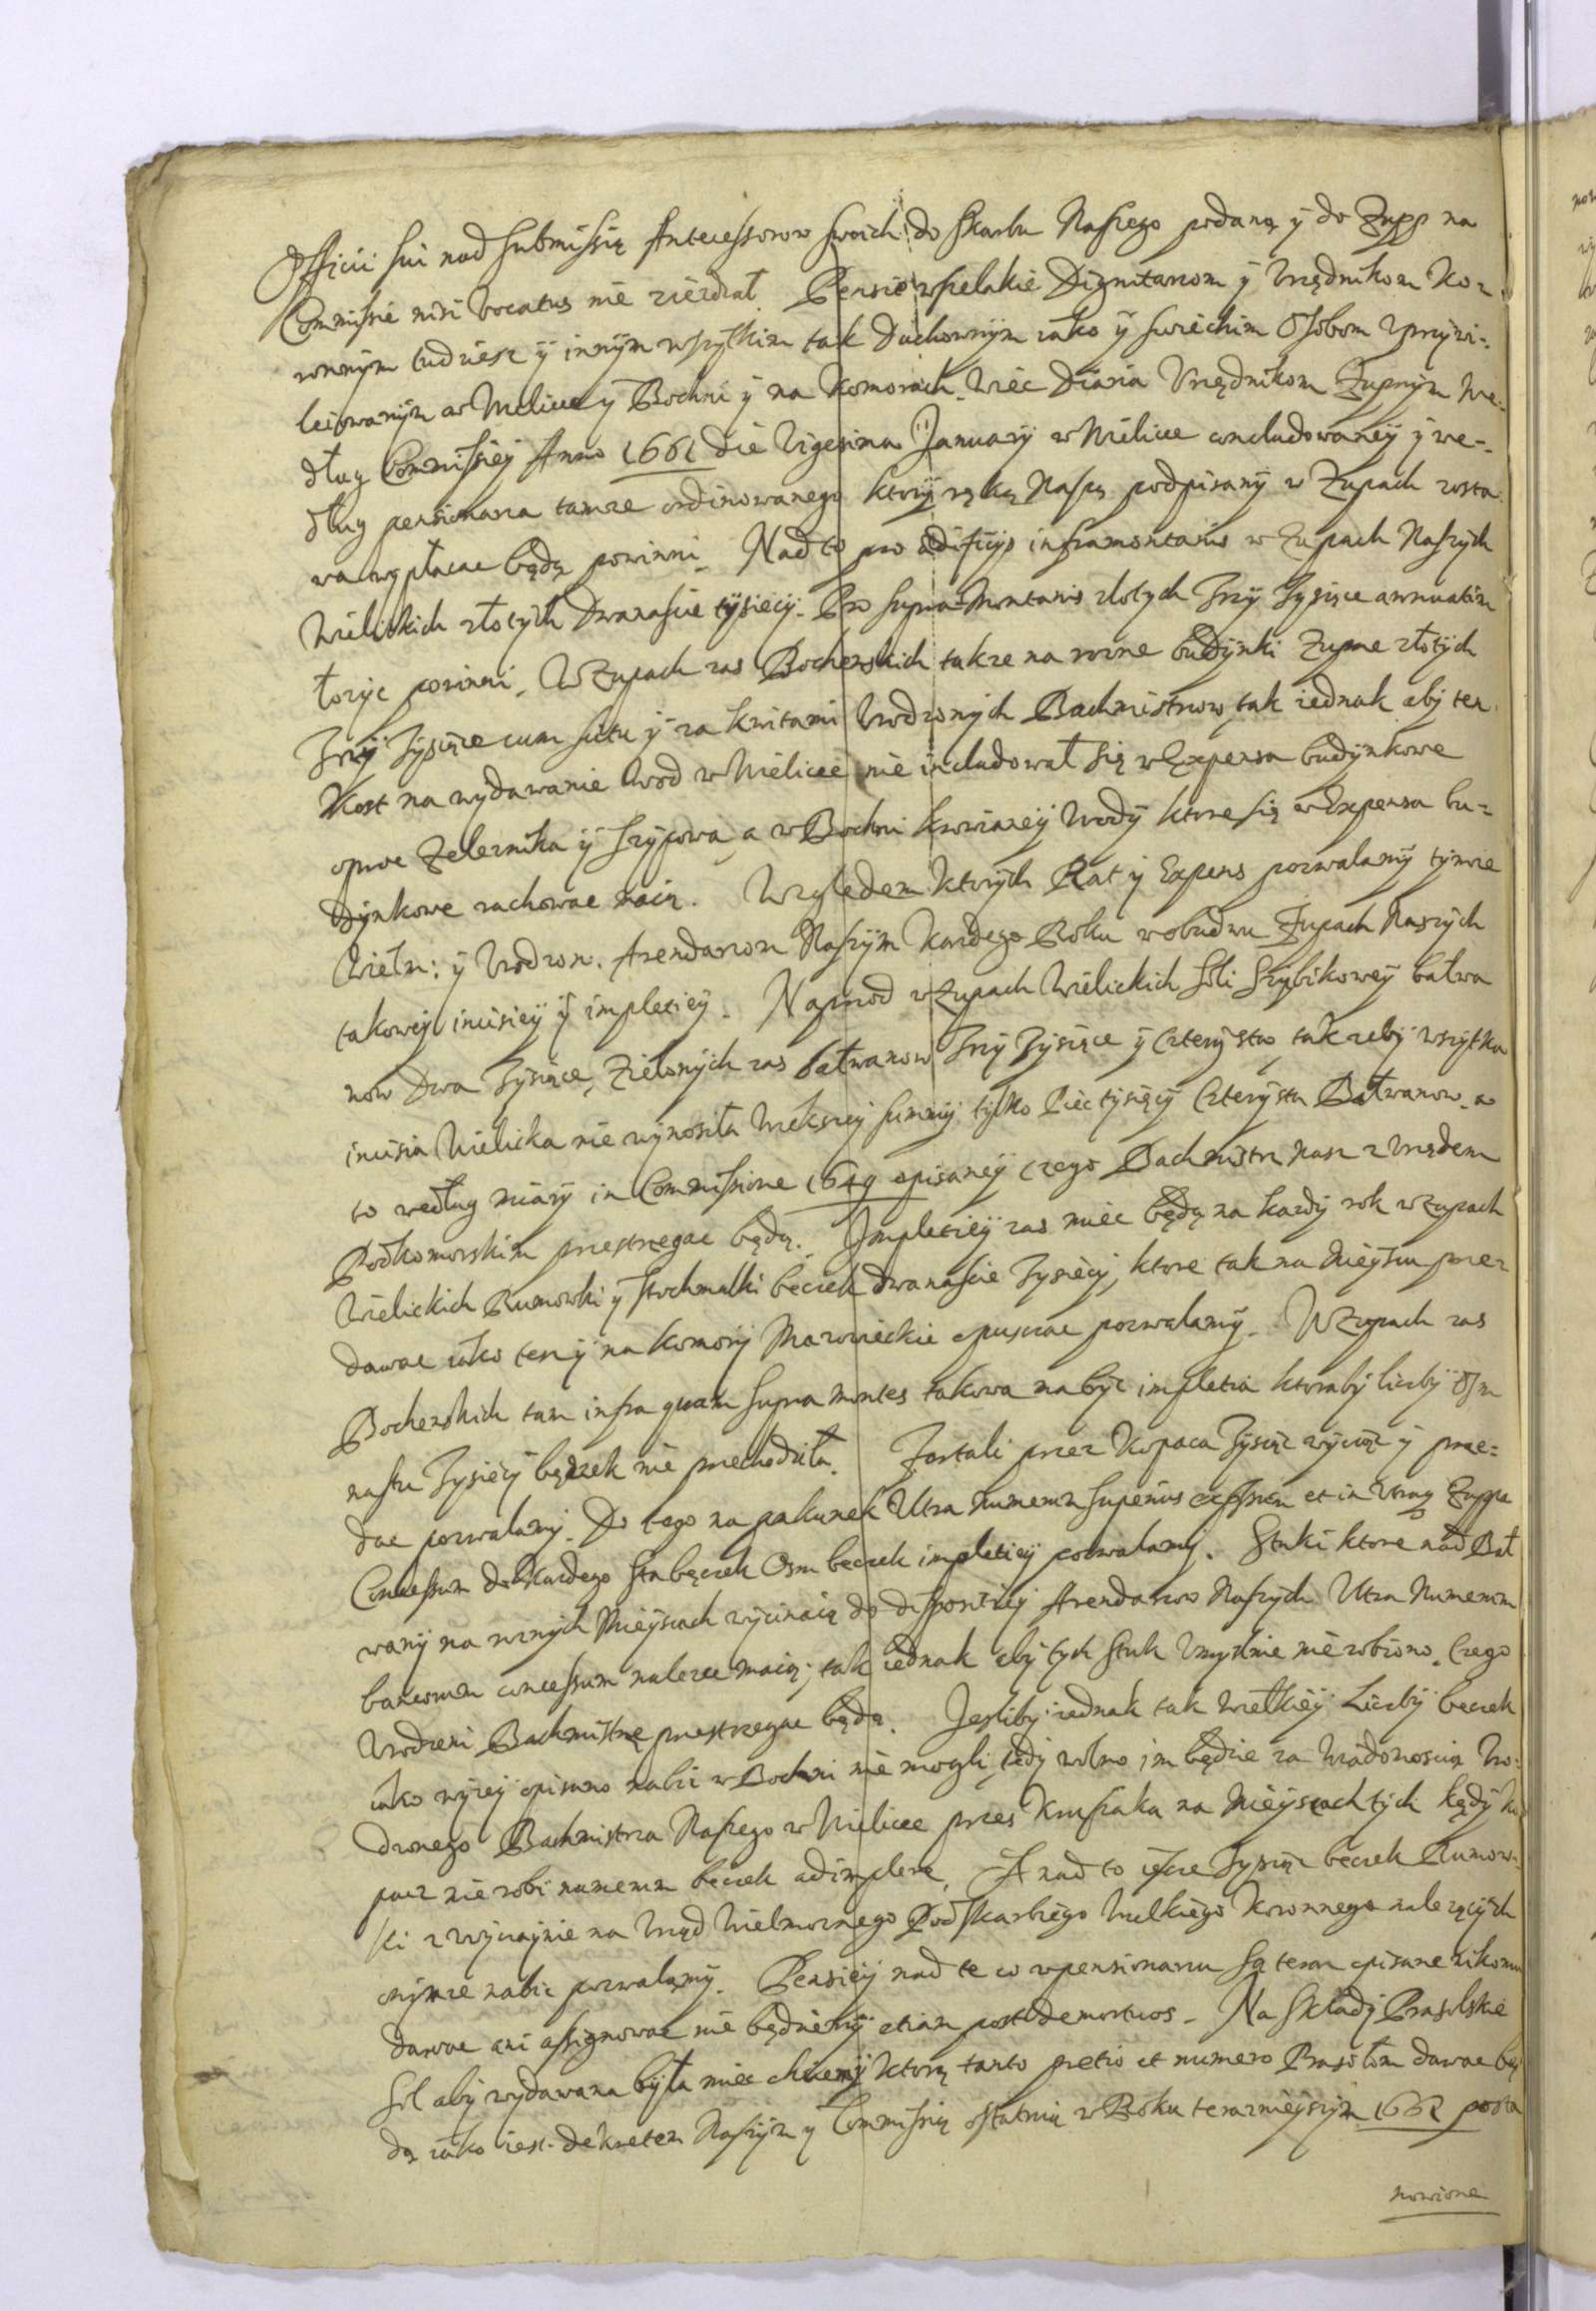 Officii sui nad submissią Antecessorow swoich do skarbu Naszego podaną ÿ do Zupp na
Commissie nisi vocatus nie ziezdzał. Pensie wszelakie Dignitarzom ÿ Vrzędnikom Ko-
ronnÿm tudziesz ÿ innÿm wszÿtkim tak Duchownÿm iako ÿ swieckim Osobom
w Wielicce ÿ Bochni ÿ na Komorach. Więc Diaria Vrzędnikom Zupnÿm We-
dług Commissiey Anno 1661 die Vigesima Januarÿ w Wielicce concludowaneÿ ÿ we-
dług pensionarza tamze ordinowanego ktorÿ ręką Naszą podpisanÿ w Zupach zosta
wa wypłacac będą powinni. Nad to pro ædificÿs inframontanis w Zupach Naszÿch
Wielickich złotÿch Dwanascie tÿsięcÿ. Pro supra-Montanis złotych Trzÿ Tysiące annuatim
łozÿc powinni. W Zupach zas Bochenskich takze na rozne budÿnki Zupne złotÿch
Trzÿ Tÿsiące cum situ ÿ za kwitami Vrodzonÿch Bachmistrzow, tak iednak abÿ ten
Koszt na wydawanie wod w Wielicce nie includował się w Expensa budÿnkowe
oprocz Zeleznika ÿ a w Bochni wodÿ ktore się w Expensa bu-
dÿnkowe rachowac maią. Względem ktorÿch Rat ÿ Expens pozwalamÿ tÿmze
Wielm: ÿ Vrodzon. Arendarzom Naszÿm Kazdego Roku w obudwu Zupach Naszÿch
takowej incisieÿ ÿ impletieÿ. Naprzod w Zupach Wielickich soli Szÿbikoweÿ bałwa
now Dwa Tysiące, Zielonÿch zas bałwanow Trzÿ Tysiące ÿ Czterÿsta, tak zebÿ wszÿtka
incisia Wielicka nie wÿnosiła wiekszeÿ summÿ tÿlko Pięc tysięcÿ Czterÿsta Bałwanow. a
to według miarÿ in Commissione 1649 opisaneÿ czego Bachmistrz nasz z Vrzędem
Podkomorskim przestrzegac będą. Impletieÿ zas miec będą na kazdÿ rok w Zupach
Wielickich Rumowki ÿ beczek dwanascie Tysięcÿ, ktore tak na Mieÿscu przez
dawac iako tesz ÿ na komorÿ Mazowieckie spuszczac pozwalamÿ. W Zupach zas
Bochenskich tam infra quam supra montes takowa ma bÿc impletia ktorabÿ liczbÿ Osm
nastu Tysięcÿ bęczek nie przechodziła. przez Kopacza Tysiąc wÿciąc ÿ prze-
dac pozwalamÿ. Do tego na pakunek Ultra numerum superius et in utraq Zuppa
Concessum do kazdego sta bęczek Osm beczek impletieÿ pozwalamÿ. Sztuki ktore nad Bał
wanÿ na roznÿch Mieÿscach wÿcinaią do dispositieÿ Arendarzow Naszÿch Ultra Numerum
bancorum concessum nalezec maią; tak iednak abÿ tych sztuk Vmyslnie nie robiono. Czego
Vrodzeni Bachmistrze przestrzegac będą. Jeslibÿ iednak tak wielkieÿ Liczbÿ beczek
iako wÿzeÿ opisano nabic w Bochni nie mogli, tedÿ wolno im będzie za wiadomoscią Vro-
dzonego Bachmistrza Naszego w Wielicce przez Kruszaka na Mieÿscach tÿch kędÿ Ko
pacz nie robi numerum beczek adimplere. A nad to iescze Tysiąc beczek Rumow-
ki zwÿczaÿnie na Vrząd Wielmoznego Podskarbiego Wielkiego Koronnego nalezącÿch
nabic pozwalamÿ. Pensieÿ nad te co w pensionarzu są teraz opisane nikomu
dawac ani assignowac nie będziemÿ etiam post demortuos. Na Składÿ Prasolskie
Sol abÿ wydawana bÿła miec chcemÿ, ktorą tanto pretio et numero Prasołom dawac bę
dą iako iest Dekretem Naszÿm ÿ Commissią ostatnią w Roku terazniejszÿm 1662 posta
nowione